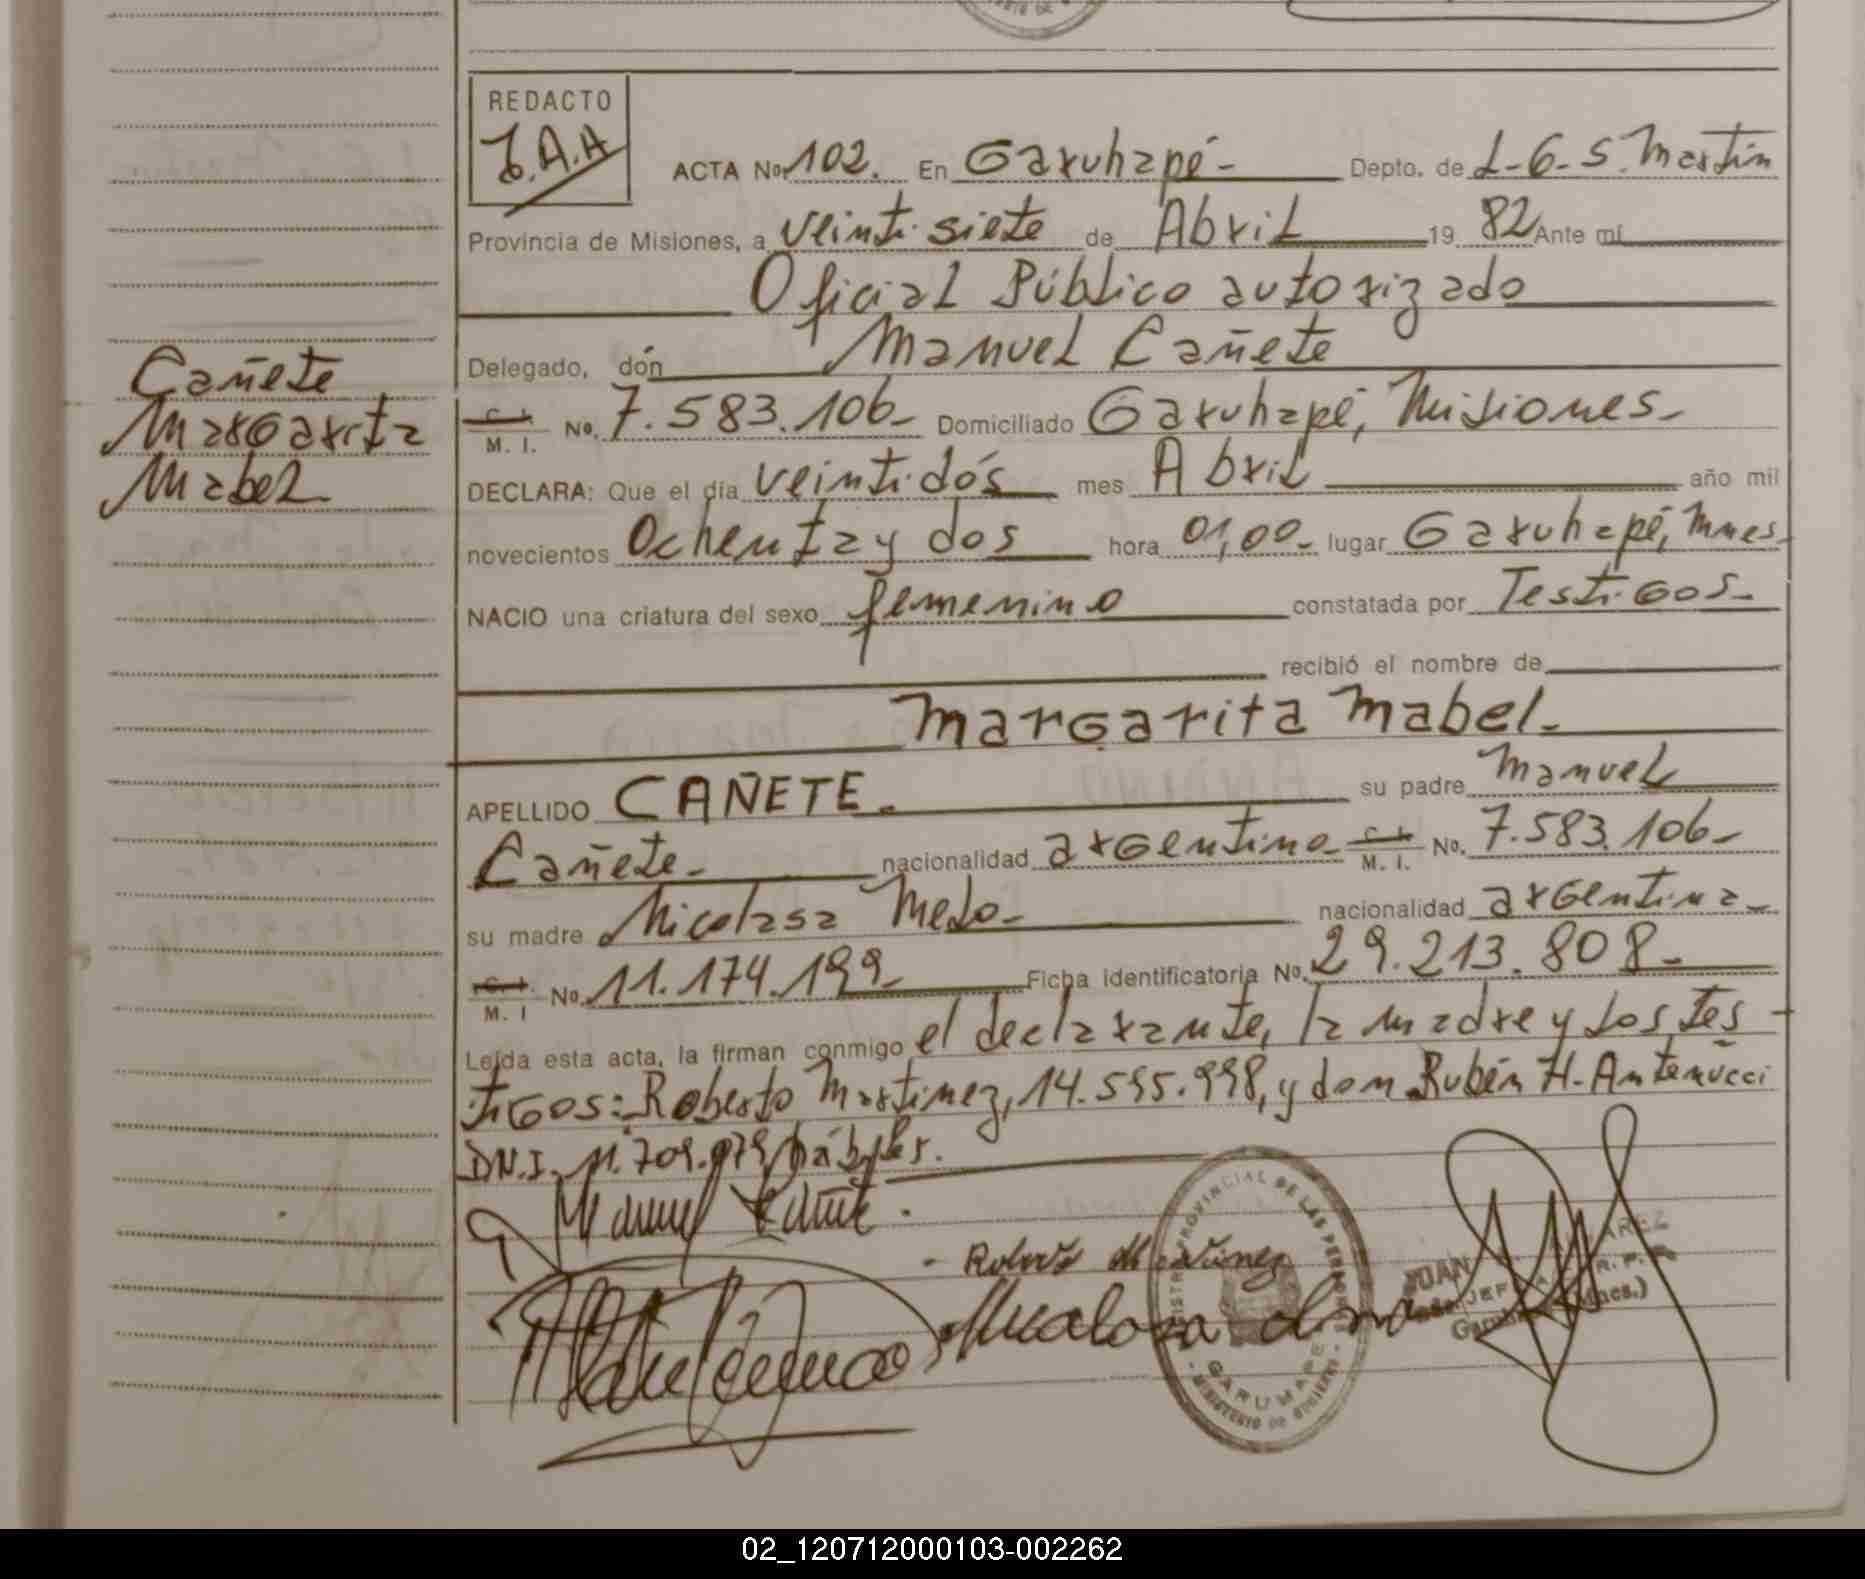 REDACTO
J.A.A
ACTA No. 102. En Garuhapé- Depto. de L-G-S. Martín
Provincia de Misiones, a veintisiete de Abril 19 82 Ante mí
Oficial Público autorizado
Delegado, dón Manuel Cañete
Cañete
Margarita
Mabel
C. I. M. I. No. 7.583.106- Domiciliado Garuhapé, Misiones-
DECLARA: Que el día veintidós mes Abril año mil
novecientos Ochenta y dos hora 01,00- lugar Garuhapé, Mnes-
NACIO una criatura del sexo femenino constatada por Testigos-
recibió el nombre de
Margarita Mabel-
APELLIDO CAÑETE- su padre Manuel
Cañete- nacionalidad argentino C. I. M. I. No. 7.583.106-
su madre Nicolasa Melo- nacionalidad argentina-
C. I. M. I No. 11.174.199- Ficha identificatoria No. 29.213.808-
Leída esta acta, la firman conmigo el declarante, la madre y los tes-
tigos: Roberto Martinez, 14.595.998, y don Rubén H. Antenucci
DNI. 11.709.979, hábiles.
Manuel Cañete
Roberto Martinez
REGISTRO PROVINCIAL DE LAS PERSONAS
GARUHAPE
MINISTERIO DE GOBIERNO
JUAN
JEF R.P.
(Mnes.)
02_120712000103-002262